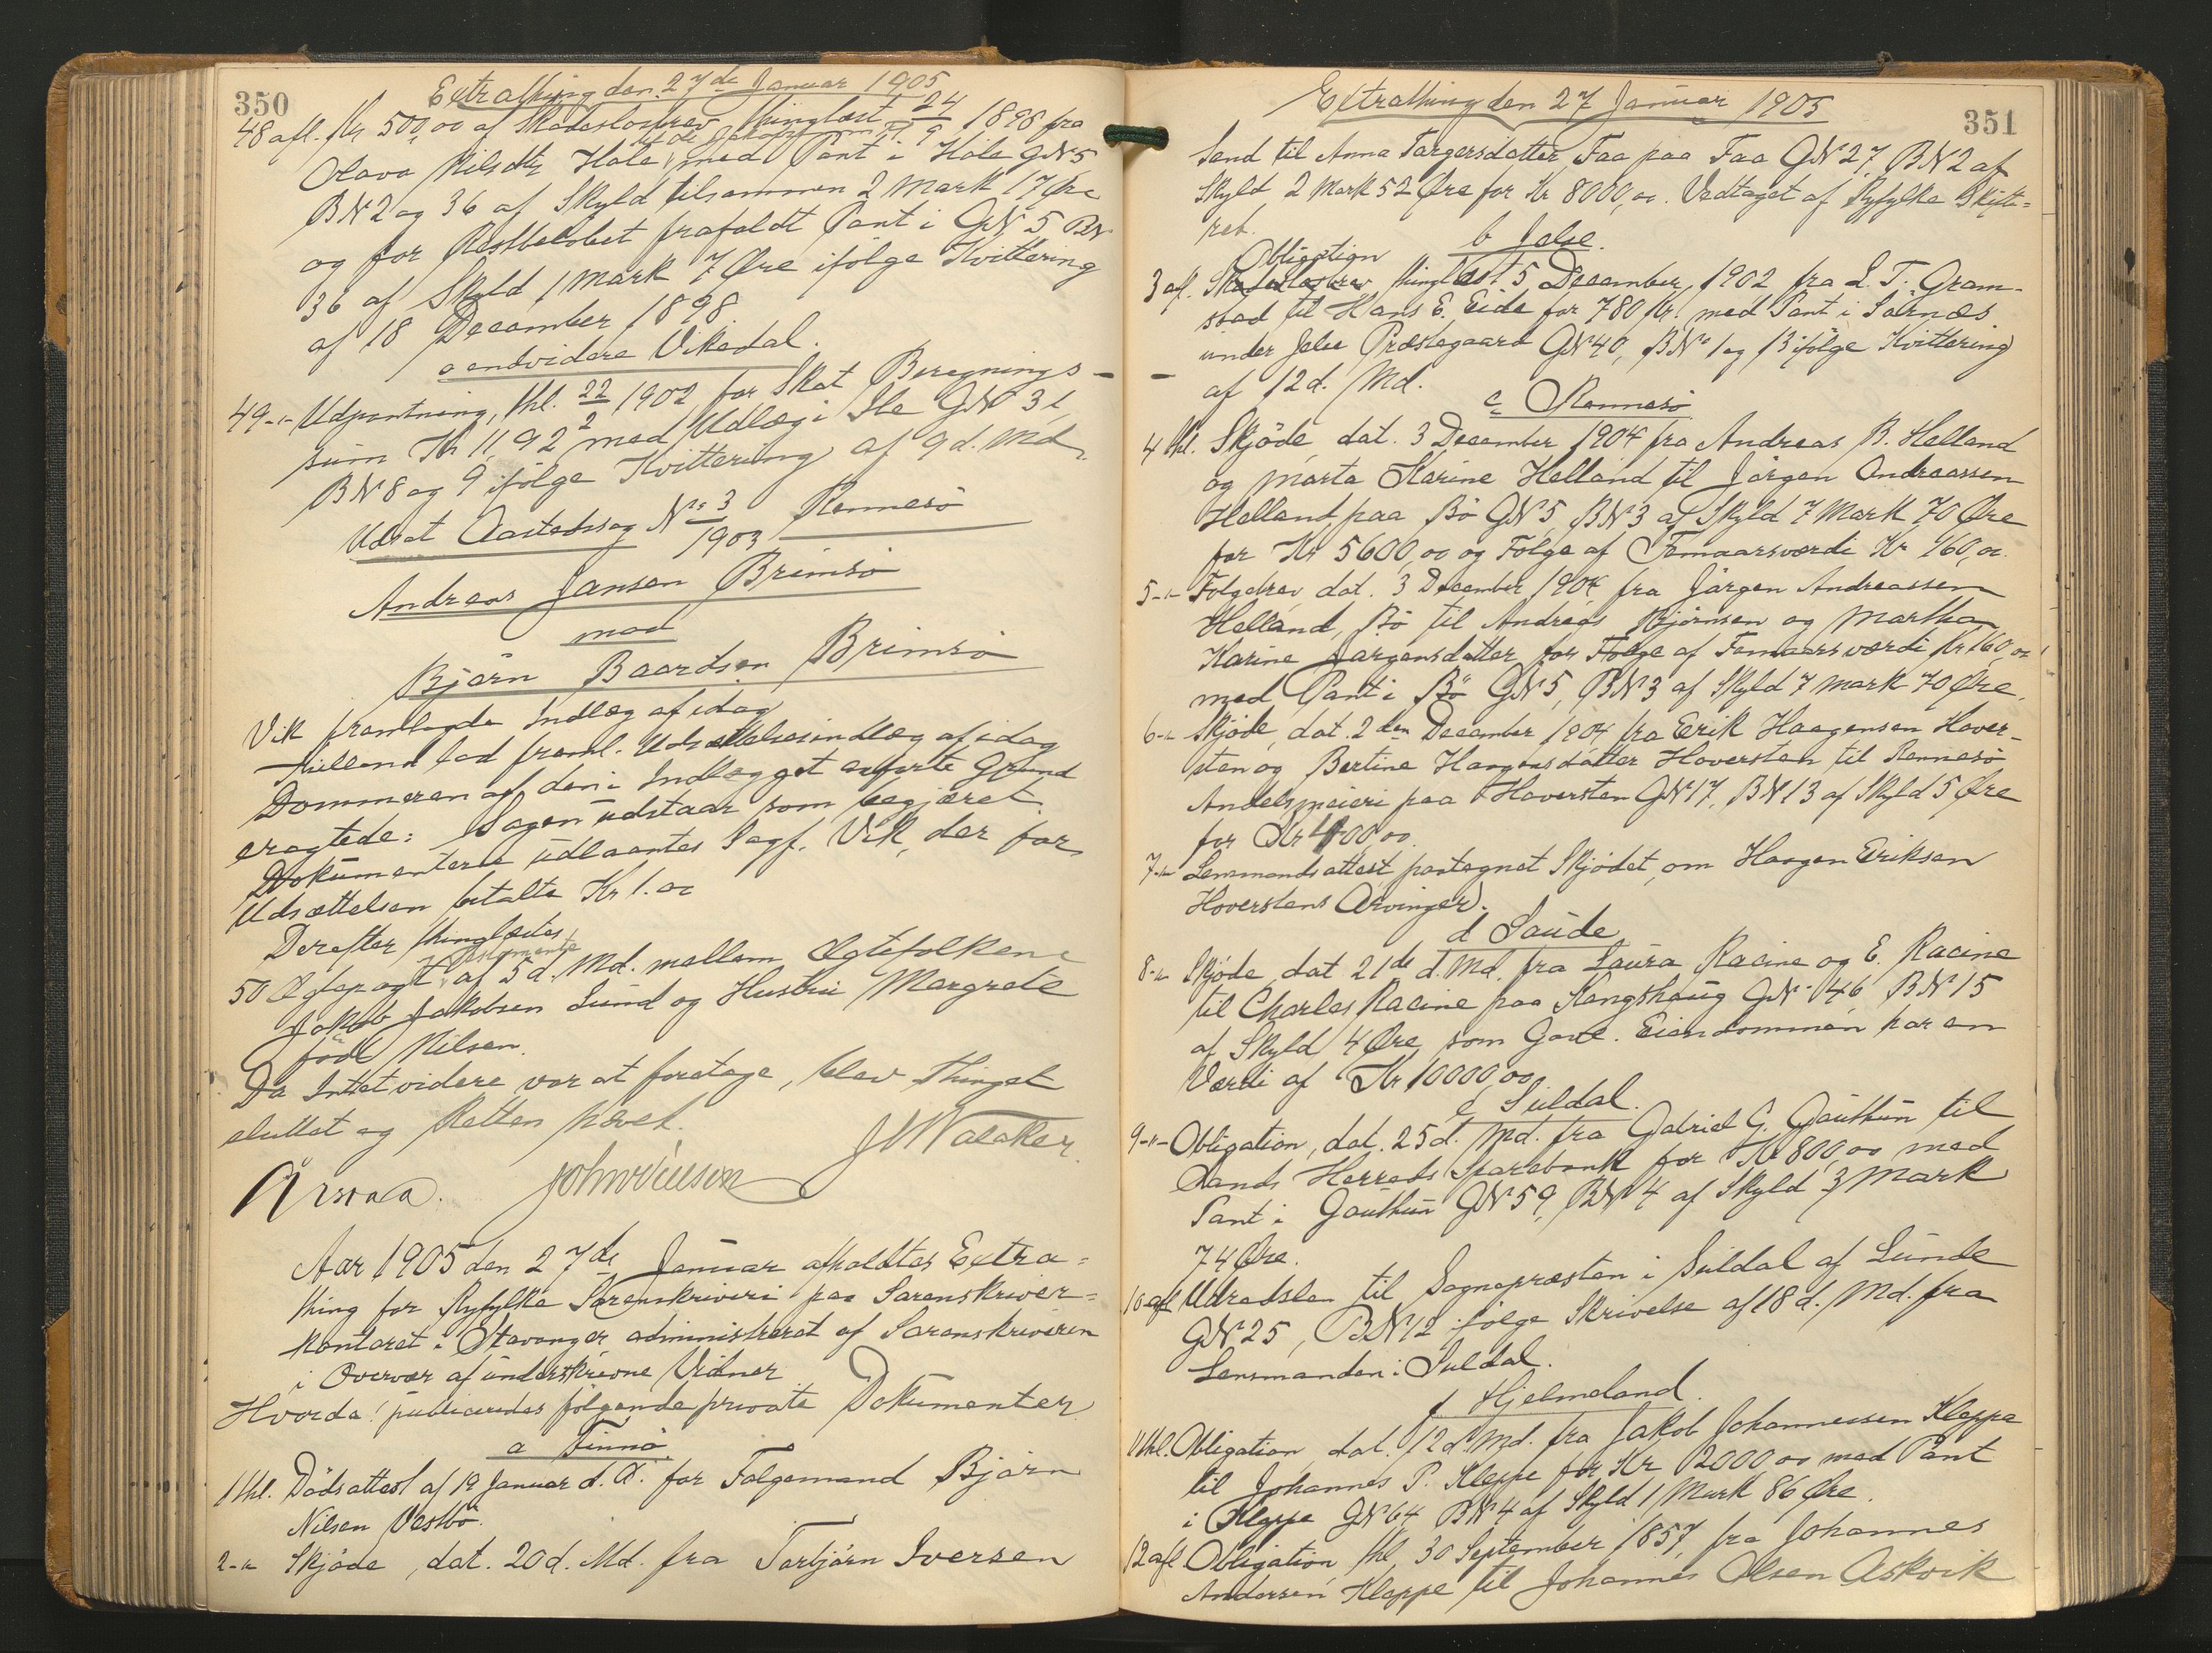 350
Extrathing den 27de Januar 1905
48 afl. Kr 500,00 af Skadesløsbrev thinglæst 24/9 1898 fra
Olava Nilsdtr Hole med Pant i Hole GN 5
BN 2 og 36 af Skyld tilsammen 2 Mark 17 Øre
og for Restbeløbet frafaldt Pant i GN 5 BN
36 af Skyld 1 Mark 7 Øre ifølge Kvittering
af 18 December 1898.
a endvidere Vikedal.
49 -"- Udpantning, thl. 22/2 1902 for Skat Beregnings-
sum Kr 11,92 med Udlæg i Ile GN 31
BN 8 og 9 ifølge Kvittering af 9 d. Md.
Udsat Aastedssag No 3/1903 Rennesö
Andreas Jansen Brimsö
mod
Björn Baardsen Brimsö
Vik fremlagde Indlæg af idag
lod freml. Udsættelsesindlæg af idag
Dommeren af den i Indlægget anførte Grund
eragtede: Sagen udstaar som begjæret.
Dokumenterne udlaantes Sagf. Vik, der for
Udsættelsen betalte Kr 1.00
Derefter thinglæstes
50 Ægtepagt af 5 d. Md. mellem Ægtefolkene
Jakob Jakobsen Lund og Hustru Margrete
född Nilsen.
Da Intet videre var at foretage, blev Thinget
sluttet og Retten hævet.
Aar 1905 den 27de Januar afholdtes Extra=
thing for Ryfylke Sorenskriveri paa Sorenskriver=
kontoret i Stavanger administreret af Sorenskriveren
i Overvær af underskrevne Vidner
Hvorda: publiceredes følgende private Dokumenter
a Finnö
1 thl. Dödsattest af 19 Januar d. A. for Folgemand Björn
Nilsen Vestbö.
2 -"- Skjöde, dat. 20 d. Md. fra Torbjörn Iversen
351
Extrathing den 27 Januar 1905
Sand til Anna Torgersdatter Faa paa Faa GN 27, BN 2 af
Skyld 2 Mark 52 Øre for Kr 8000,00. Vedtaget af Ryfylke Skifte=
ret.
b Jelse.
Obligation
3 afl. Skadesløsbrev thinglæst 5 December 1902 fra L. T. Gram-
stad til Hans E. Eide for 780 Kr. med Pant i Sarnæs
under Jelse Præstegaard GN 40, BN 1 og 13 ifölge Kvittering
af 12 d. Md.
c Rennesö
4 thl. Skjöde, dat. 3 December 1904 fra Andreas B. Helland
og Marta Karine Helland til Jörgen Andreassen
Helland, paa Bö GN 5, BN 3 af Skyld 7 Mark 70 Øre
for Kr 5600,00 og Folge af Femaarsværdi Kr 160,00.
5 -"- Folgebrev, dat. 3 December 1904 fra Jörgen Andreassen
Helland, Bö til Andreas Björnsen og Martha
Karine Jørgensdatter for Folge af Femaarsværdi Kr 160,00
med Pant i Bö GN 5, BN 3 af Skyld 7 Mark 70 Øre.
6 -"- Skjöde, dat. 2den December 1904 fra Erik Haagensen Hover-
sten og Bertine Haagensdatter Hoversten til Rennesö
Andelsmeieri paa Hoversten GN 17, BN 13 af Skyld 5 Øre
for Kr 400,00.
7 -"- Lensmandsattest, paategnet Skjödet, om Haagen Eriksen
Hoverstens Arvinger.
d Saude
8 -"- Skjöde, dat 21de d. Md. fra Laura Racine og E. Racine
til Charles Racine paa Kongshaug GN 46 BN 15
af Skyld 4 Øre, som Gave. Eiendommen har en
Værdi af Kr 10000,00.
e Suldal.
9 -"- Obligation, dat. 25 d. Md. fra Gabriel G. Gauthun til
Sands Herreds Sparebank for Kr 800,00 med
Pant i Gauthun GN 59, BN 4 af Skyld 3 Mark
74 Øre.
10 afl Udredsler til Sognepræsten i Suldal af Lunde
GN 25, BN 12 ifölge Skrivelse af 18 d. Md. fra
Lensmanden i Suldal.
f Hjelmeland.
11 thl. Obligation, dat. 12 d. Md. fra Jakob Johannessen Kleppe
til Johannes P. Kleppe for Kr 2000,00 med Pant
i Kleppe GN 64 BN 4 af Skyld 1 Mark 86 Øre.
12 afl Obligation, thl. 30 September 1857, fra Johannes
Andersen Kleppe til Johannes Olsen Askvik